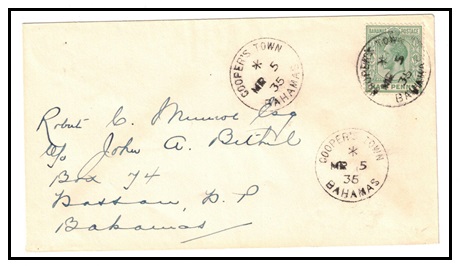 COOPER'S TOWN
*
MR 5
35
BAHAMAS
BAHAMAS POSTAGE
HALF PENNY
COOPER'S TOWN
*
MR 5
35
BAHAMAS
COOPER'S TOWN
*
MR 5
35
BAHAMAS
Robert C. Munroe Esq
c/o John A. Bethel
Box 74
Nassau, N. P
Bahamas